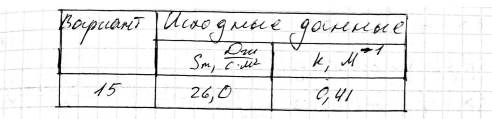 Вариант Исходные данные
Sm, Дж/с·м² k, м⁻¹
15 26,0 0,41